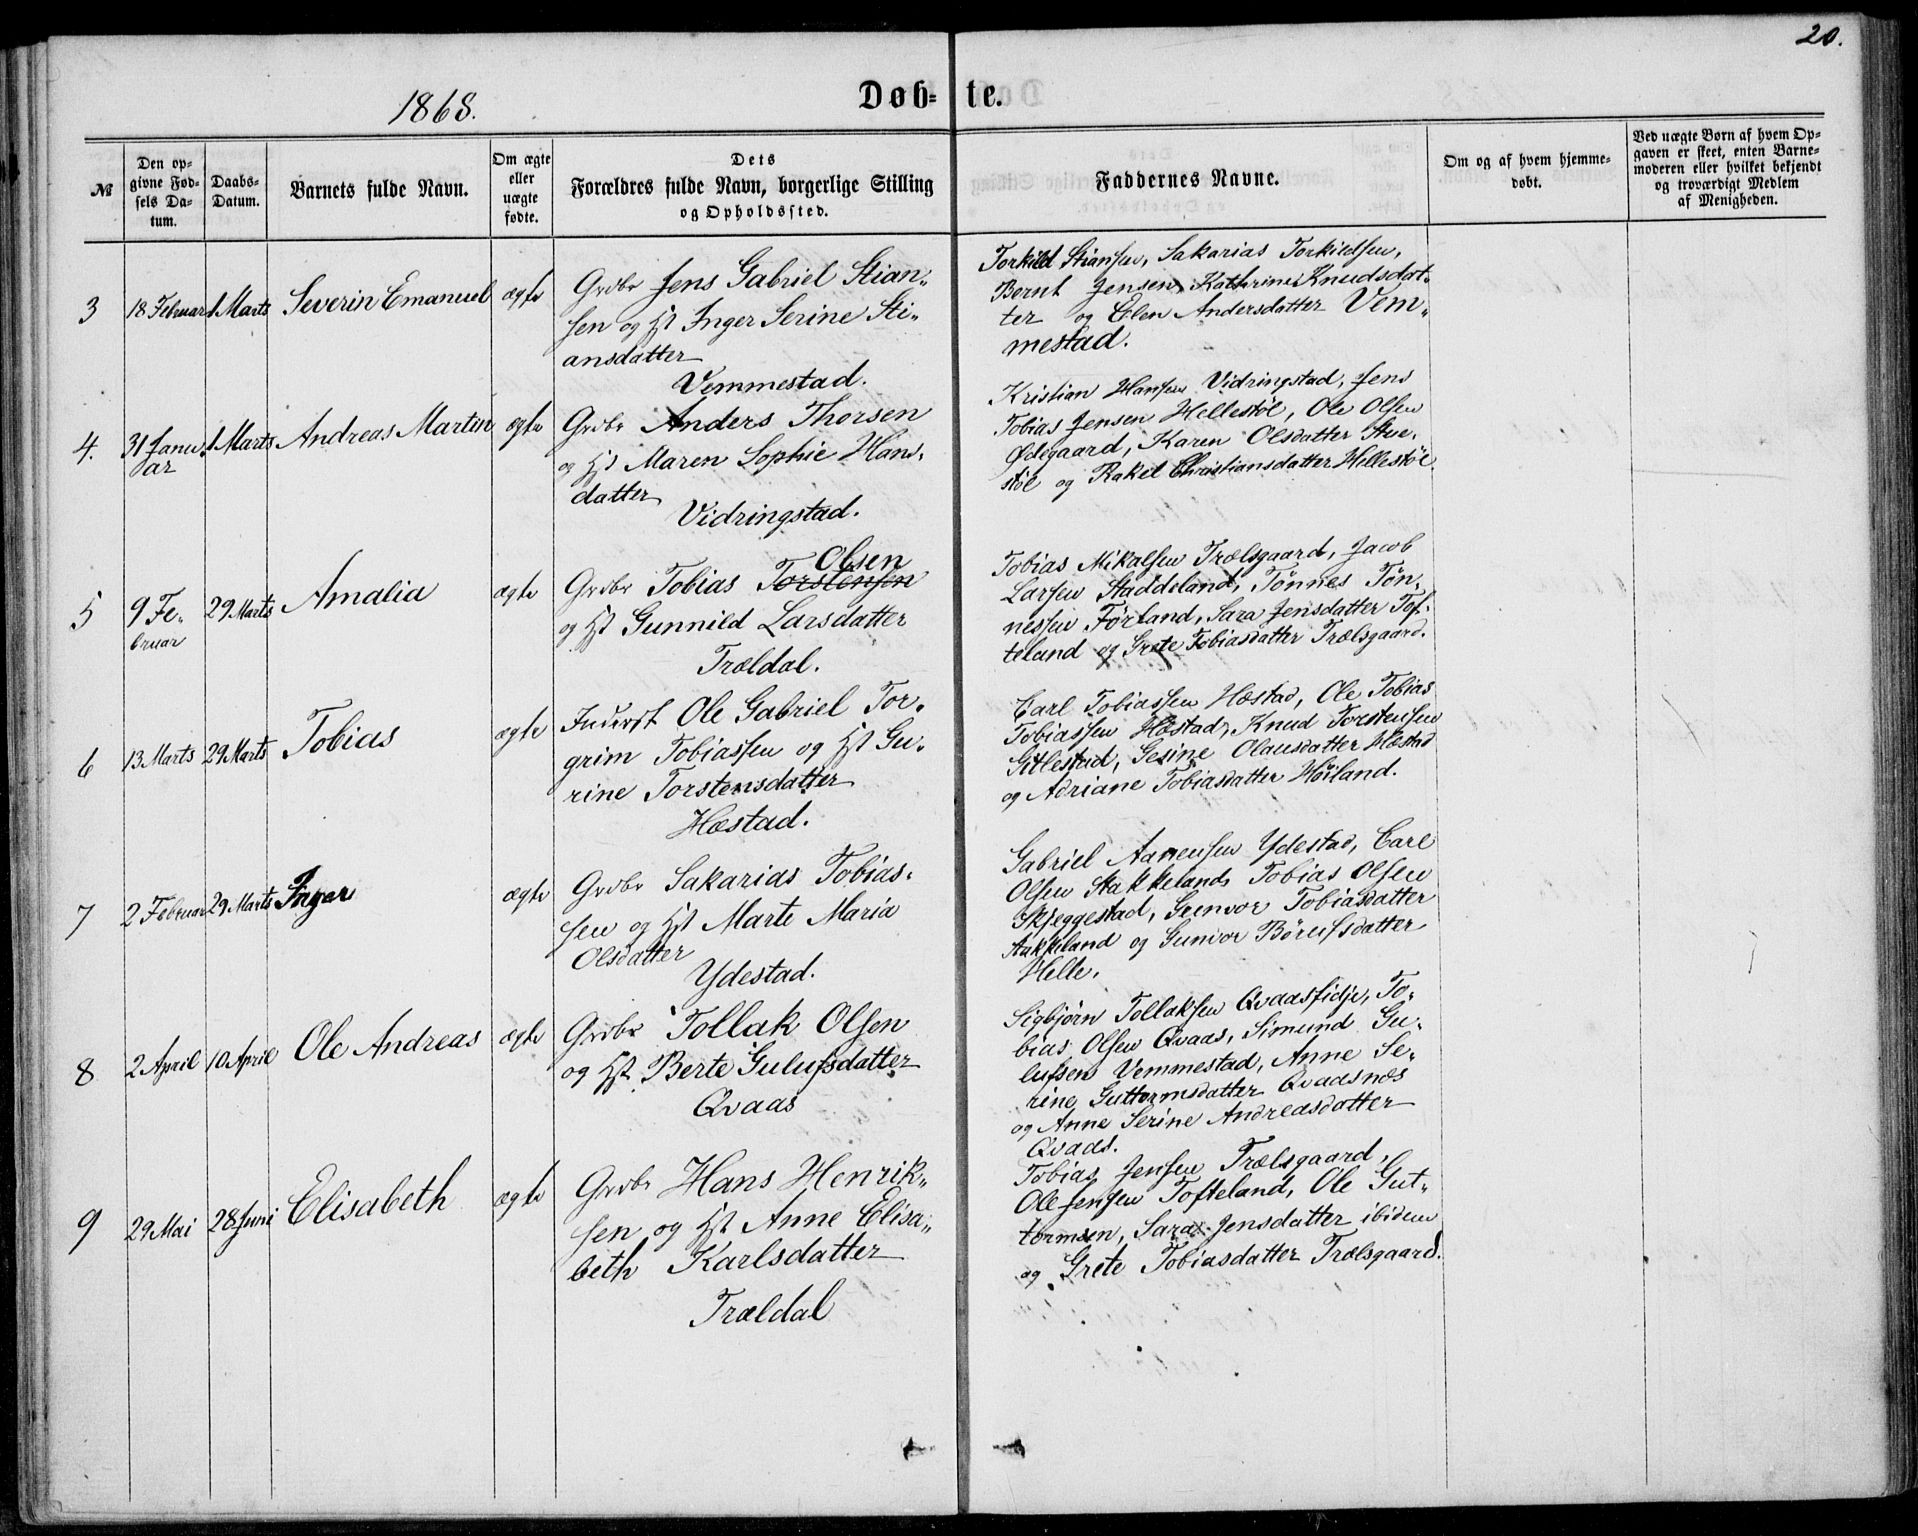 20.
1868.
Døb-te.
№
Den op-
givne Fød-
sels Da-
tum.
Daabs-
Datum.
Barnets fulde Navn.
Om ægte
eller
uægte
fødte.
Dets
Forældres fulde Navn, borgerlige Stilling
og Opholdssted.
Faddernes Navne.
Om og af hvem hjemme-
døbt.
Ved uægte Børn af hvem Op-
gaven er skeet, enten Barne-
moderen eller hvilket bekjendt
og troværdigt Medlem
af Menigheden.
3
18 Februar
1 Marts
Severin Emanuel
ægte
Grdbr Jens Gabriel Stian-
sen og Hst Inger Serine Sti-
ansdatter
Vemmestad.
Torkild Stiansen, Sakarias Torkildsen,
Bernt Jensen, Kathrine Knudsdat-
ter og Elen Andersdatter Vem-
mestad.
4.
31 Janu-
ar
1 Marts
Andreas Martin
ægte
Grdbr Anders Thorsen
og Hst Maren Sophie Hans-
datter
Vidringstad.
Kristian Hansen Vidringstad, Jens
Tobias Jensen Hellestøl, Ole Olsen
Ødegaard, Karen Olsdatter Stue-
støl og Rakel Christiansdatter Hillestøl
5
9 Fe-
bruar
29 Marts
Amalia
ægte
Olsen
Grdbr Tobias Torstensen
og Hst Gunnild Larsdatter
Trældal.
Tobias Mikalsen Trælsgaard, Jacob
Larsen Staddeland, Tønnes Tøn-
nessen Førland, Sara Jensdatter Tof-
teland og Grete Tobiasdatter Trælsgaard.
6
13 Marts
29 Marts
Tobias
ægte
Inderst Ole Gabriel Tor-
grim Tobiassen og Hst Gu-
rine Torstensdatter
Hæstad.
Carl Tobiassen Hæstad, Ole Tobias
Tobiassen Hæstad, Knud Torstensen
Gitlestad, Gesine Olausdatter Hæstad
og Adriane Tobiasdatter Høiland.
7
2 Februar
29 Marts
Inger
ægte
Grdbr Sakarias Tobias-
sen og Hst Marte Maria
Olsdatter
Ydestad.
Gabriel Aanensen Ydestad, Carl
Olsen Stakkeland, Tobias Olsen
Skjeggestad, Gunvor Tobiasdatter
Stakkeland og Gunvor Børufsdatter
Helle.
8
2 April
10 April
Ole Andreas
ægte
Grdbr Tollak Olsen
og Hst Berte Gulufsdatter
Qvaas
Sigbjørn Tollaksen Qvaasfidje, To-
bias Olsen Qvaas, Simund Gu-
lufsen Vemmestad, Anne Se-
rine Guttormsdatter Qvaasnæs
og Anne Serine Andreasdatter
Qvaas.
9
29 Mai
28 Juni
Elisabeth
ægte
Grdbr Hans Henrik-
sen og Hst Anne Elisa-
beth Karlsdatter
Trældal
Tobias Jensen Trælsgaard,
Ole Jensen Tofteland, Ole Gut-
tormsen, Sara Jensdatter ibidem
og Grete Tobiasdatter Trælsgaard.